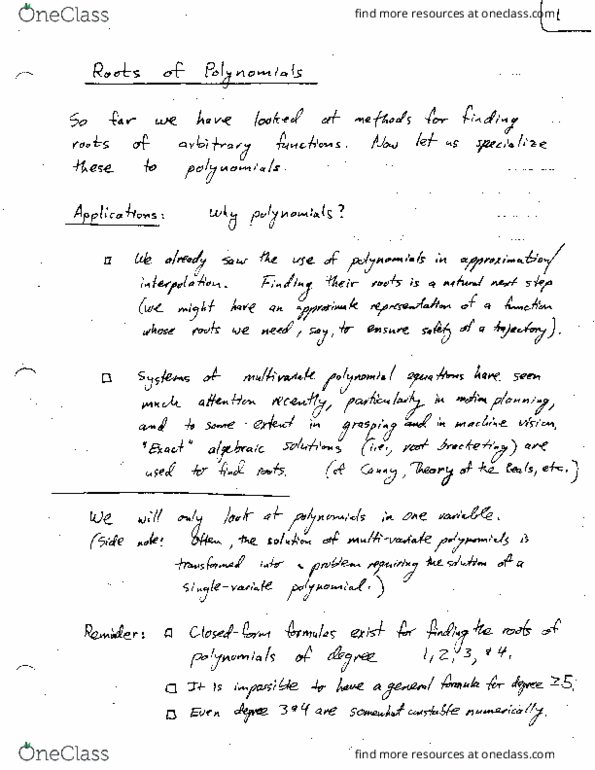 OneClass
find more resources at oneclass.com
1
Roots of Polynomials
So far we have looked at methods for finding
roots of arbitrary functions. Now let us specialize
these to polynomials.
Applications: Why polynomials?
□ We already saw the use of polynomials in approximation/
interpolation. Finding their roots is a natural next step
(we might have an approximate representation of a function
whose roots we need, say, to ensure safety of a trajectory).
□ Systems of multivariate polynomial equations have seen
much attention recently, particularly in motion planning,
and to some extent in grasping and in machine vision.
"Exact" algebraic solutions (i.e., root bracketing) are
used to find roots. (cf Canny, Theory of the Reals, etc.)
We will only look at polynomials in one variable.
(Side note: Often, the solution of multi-variate polynomials is
transformed into a problem requiring the solution of a
single-variate polynomial.)
Reminder: □ Closed-form formulas exist for finding the roots of
polynomials of degree 1, 2, 3, & 4.
□ It is impossible to have a general formula for degree ≥5.
□ Even degree 3 & 4 are somewhat unstable numerically.
OneClass
find more resources at oneclass.com